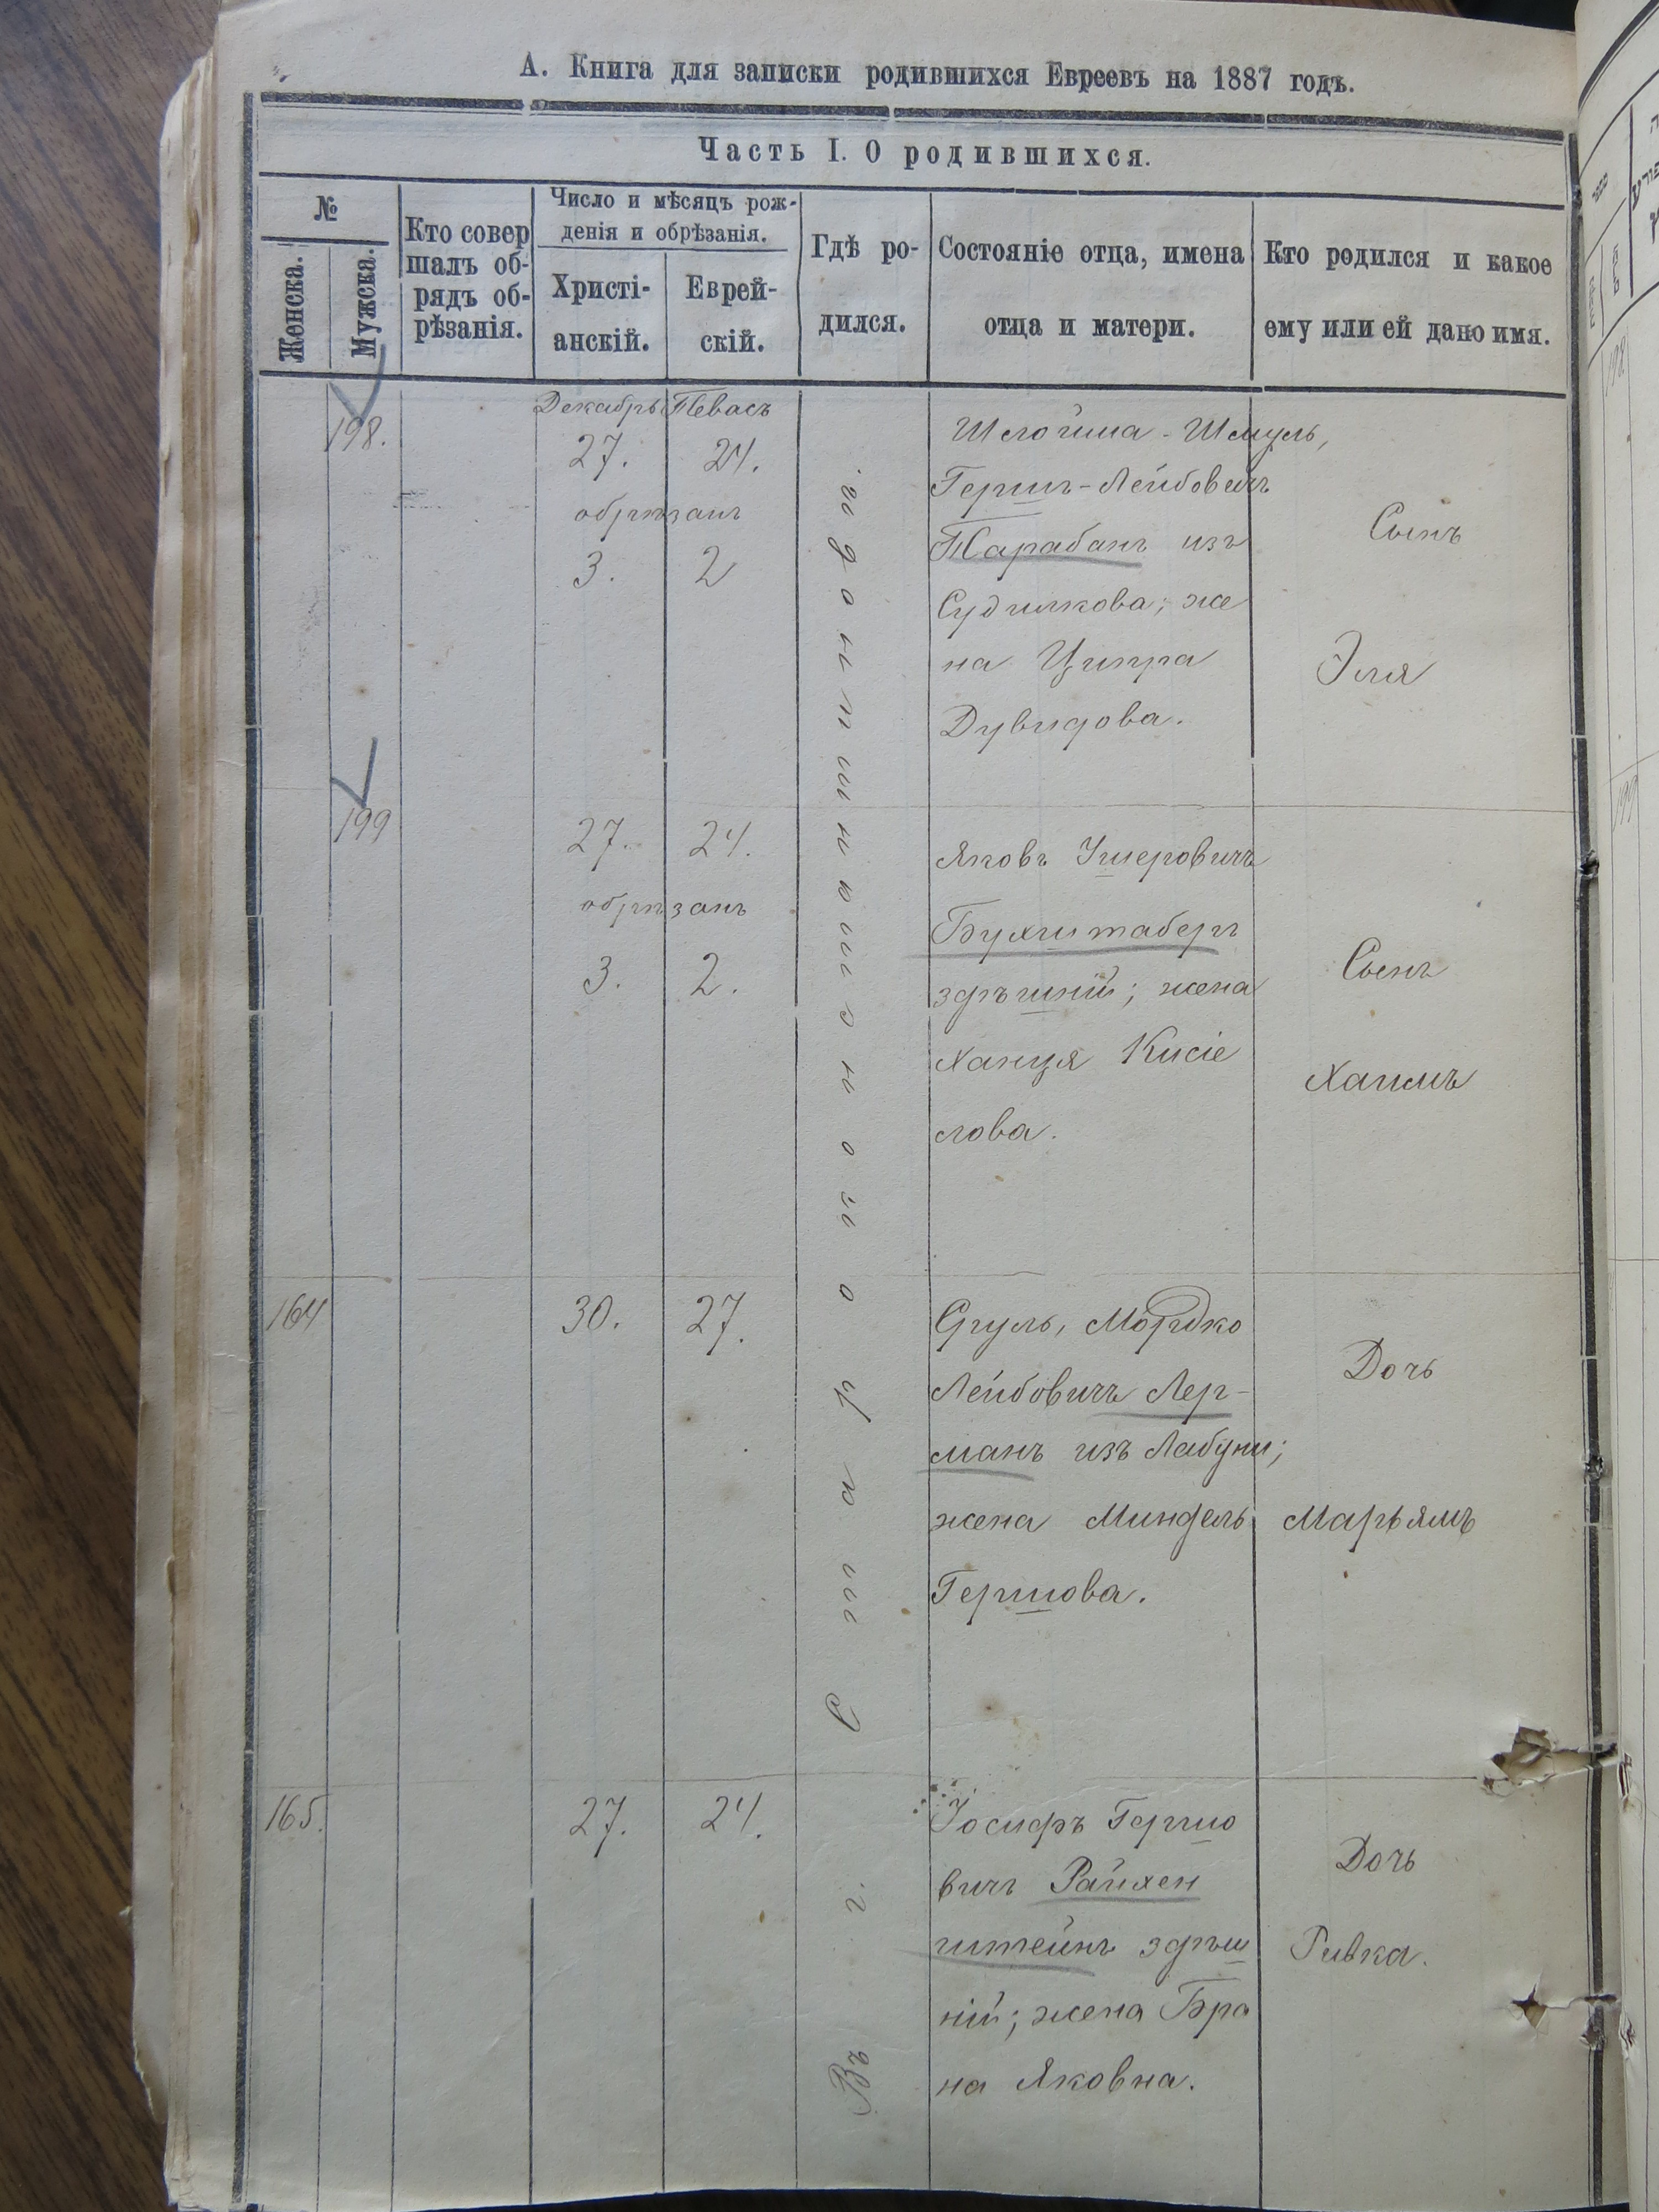 А. Книга для записки родившихся Евреевъ на 1887 годъ.
Часть I. О родившихся.
№
Женска.
Мужска.
Кто совер
шалъ об-
рядъ об-
рѣзанія.
Число и мѣсяцъ рож-
денія и обрѣзанія.
Христі-
анскій.
Еврей-
скій.
Гдѣ ро-
дился.
Состояніе отца, имена
отца и матери.
Кто родился и какое
ему или ей дано имя.
Въ г. Староконстантиновѣ
198.
Декабрь Тевасъ
27. 24.
обрѣзанъ
3. 2
Шлойма-Шмуль,
Гершъ-Лейбовичъ
Тарабанъ изъ
Судилкова; же
на Ципра
Дувидова.
Сынъ
Эля
199
27. 24.
обрѣзанъ
3. 2.
Яковъ Ушеровичъ
Бухштабергъ
здѣшній; жена
Ханця Кисіе
лова.
Сынъ
Хаимъ
164
30. 27.
Сруль, Мордко
Лейбовичъ Лер-
манъ изъ Лабуни;
жена Миндель
Гершова.
Дочь
Марьямъ
165.
27. 24.
Іосифъ Гершо
вичъ Райхен
штейнъ здѣш
ній; жена Бра
на Яковна.
Дочь
Ривка.
198
199